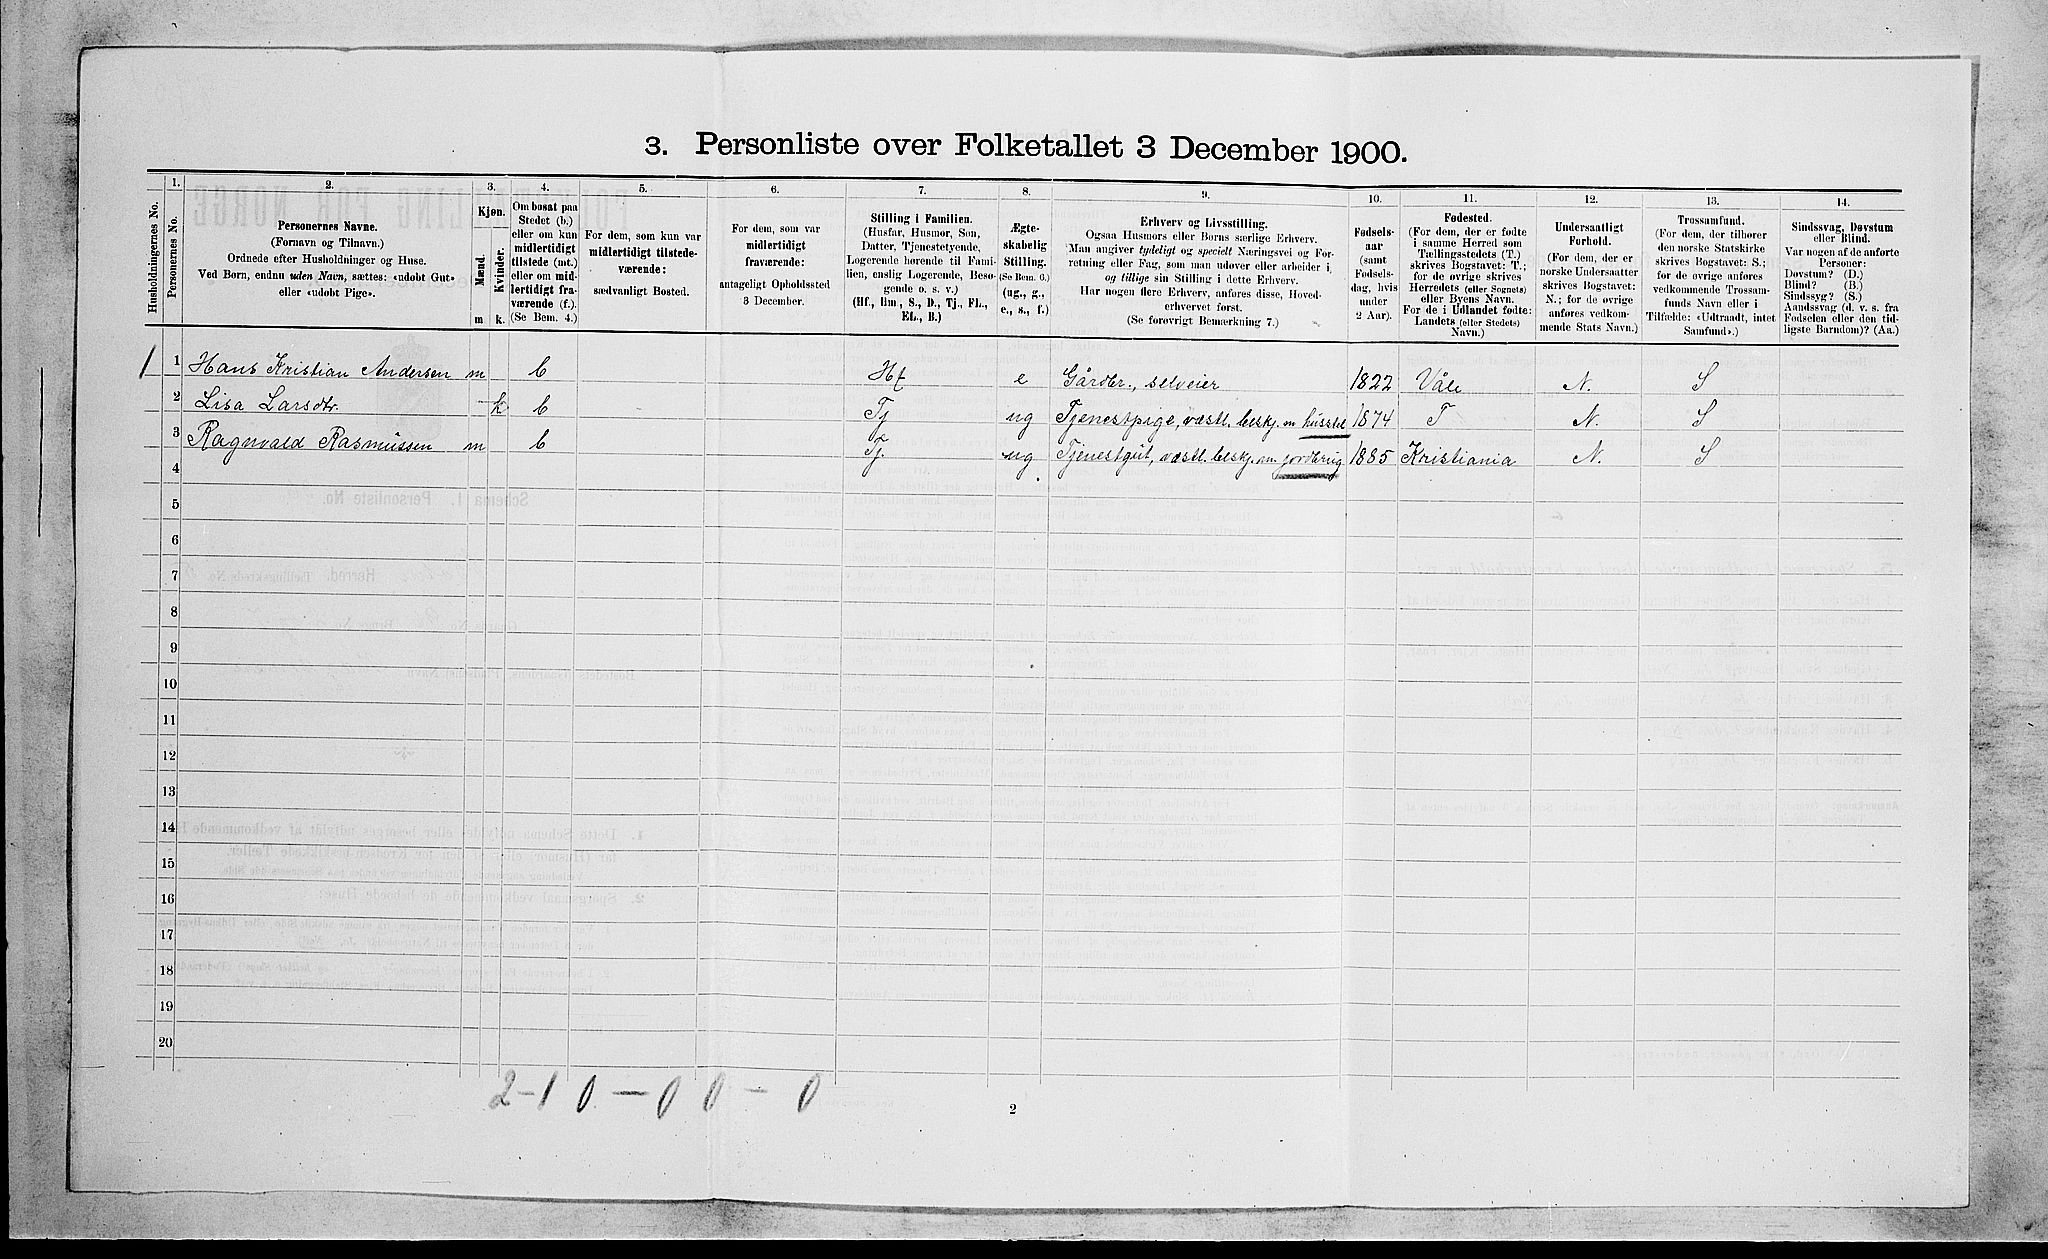 3. Personliste over Folketallet 3 December 1900.
Husholdningernes No.
1.
Personernes No.
2.
Personernes Navne.
(Fornavn og Tilnavn.)
Ordnede efter Husholdninger og Huse.
Ved Børn, endnu uden Navn, sættes: «udøbt Gut»
eller «udøbt Pige».
3.
Kjøn.
Mænd.
Kvinder.
m k.
4.
Om bosat paa
Stedet (b.)
eller om kun
midlertidigt
tilstede (mt.)
eller om mid-
lertidigt fra-
værende (f.).
(Se Bem. 4.)
5.
For dem, som kun var
midlertidigt tilstede-
værende:
sædvanligt Bosted.
6.
For dem, som var
midlertidigt
fraværende:
antageligt Opholdssted
3 December.
7.
Stilling i Familien.
(Husfar, Husmor, Søn,
Datter, Tjenestetyende,
Logerende hørende til Fami-
lien, enslig Logerende, Besø-
gende o. s. v.)
(Hf., Hm., S., D., Tj., FL.,
EL., B.)
8.
Ægte-
skabelig
Stilling.
(Se Bem. 6.)
(ug., g.,
e., s., f.)
9.
Erhverv og Livsstilling.
Ogsaa Husmors eller Børns særlige Erhverv.
Man angiver tydeligt og specielt Næringsvei og For-
retning eller Fag, som man udøver eller arbeider i,
og tillige sin Stilling i dette Erhverv.
Har nogen flere Erhverv, anføres disse, Hoved-
erhvervet først.
(Se forøvrigt Bemærkning 7.)
10.
Fødsels-
aar
(samt
Fødsels-
dag, hvis
under
2 Aar).
11.
Fødested.
(For dem, der er fødte
i samme Herred som
Tællingsstedets (T.)
skrives Bogstavet: T.;
for de øvrige skrives
Herredets (eller Sognets)
eller Byens Navn.
For de i Udlandet fødte:
Landets (eller Stedets)
Navn.)
12.
Undersaatligt
Forhold.
(For dem, der er
norske Undersaatter
skrives Bogstavet:
N.; for de øvrige
anføres vedkom-
mende Stats Navn.)
13.
Trossamfund.
(For dem, der tilhører
den norske Statskirke
skrives Bogstavet: S.;
for de øvrige anføres
vedkommende Trossam-
funds Navn eller i
Tilfælde: «Udtraadt, intet
Samfund».)
14.
Sindssvag, Døvstum
eller Blind.
Var nogen af de anførte
Personer:
Døvstum? (D.)
Blind? (B.)
Sindssyg? (S.)
Aandssvag (d. v. s. fra
Fødselen eller den tid-
ligste Barndom)? (Aa.)
1 1 Hans Kristian Andersen m b Hf e Gårdbr., selveier 1822 Våle N. S
2 Lisa Larsdtr. k b Tj ug Tjenestpige, væstl. beskj. m husstel 1874 T N. S
3 Ragnvald Rasmussen m b Tj. ug Tjenestgut, væstl. beskj. m. jordbrug 1885 Kristiania N. S
4
5
6
7
8
9
10
11
12
13
14
15
16
17
18
19
20
2-1 0 - 0 0 - 0
2